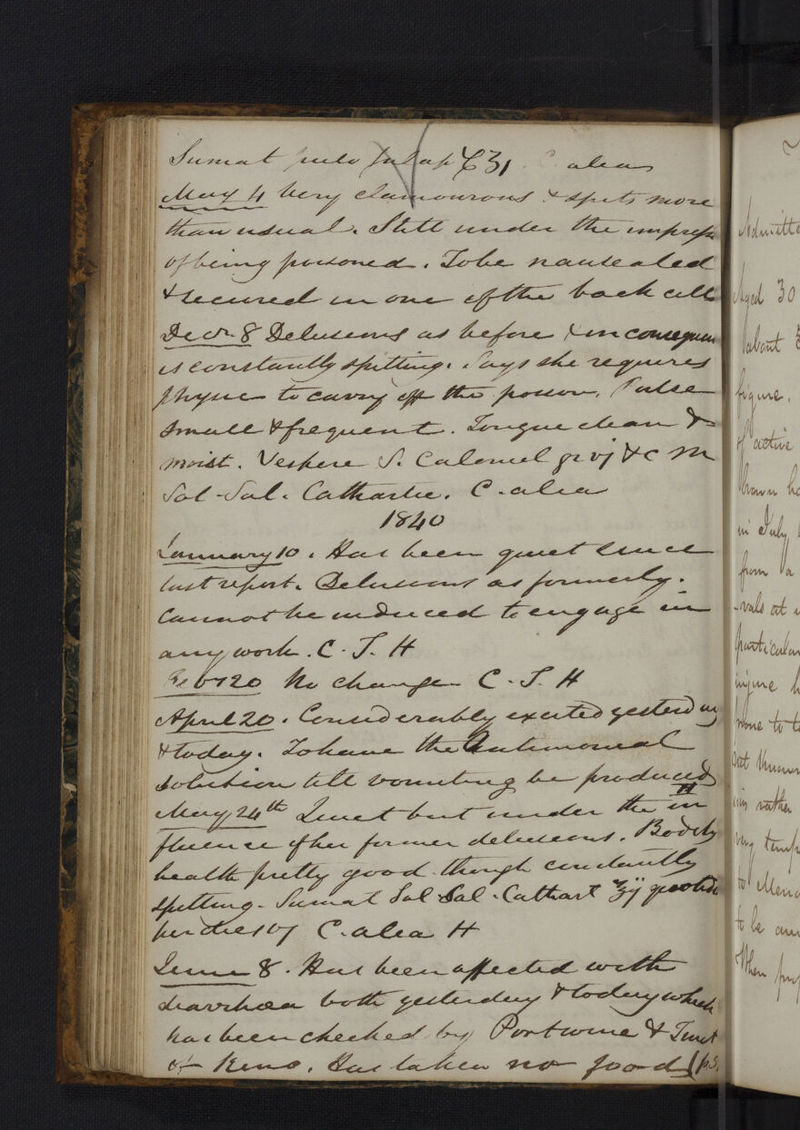 Sumat pulv Jalap ʒ1 C. alea
May 4 Very clamourous & spits more
than usual. Still under the impress
of being poisoned. To be nauseated
& secured in one of the back cell
Decr. 8 Delusions as before & in consequen
is constantly spitting. Says she requires
physic to carry off the poison. Pulse
small & frequent. Tongue clean &
moist. Vespere S. Calomel gr vj & C M
Sol. Sal. Cathartic. C. alea
1840
January 10. Has been quiet since
last report. Delusions as formerly.
Cannot be induced to engage in
any work. C. T. H
Feby 20 No change C. T. H
April 20. Considerably excited yesterday
& today. To have the Antimonial
solution till vomiting be produced
May 24th Quiet but under the in
fluence of her former delusions. H Bodily
health pretty good though constantly
spitting. Sumat Sol Sal. Cathart ℥ij quotide
per dies vj C. alea H
June 8. Has been affected with
diarrhœa both yesterday & today which
has been checked by Port wine & Tinct
of Keno. Has taken no food (p3
Admitte
Aged 30
about
figure.
of active
brown ha
in July
from a
-vals at
particular
injure h
none to t
rather
very temp
to be
When